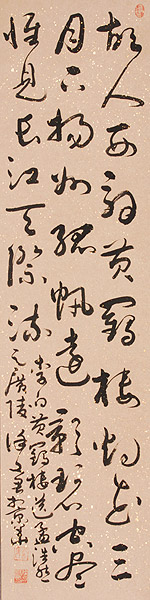 故人西辞黄鶴樓烟花三
月下揚州孤帆遠影碧空盡
惟見長江天際流
李白黄鶴樓送孟浩然
之廣陵